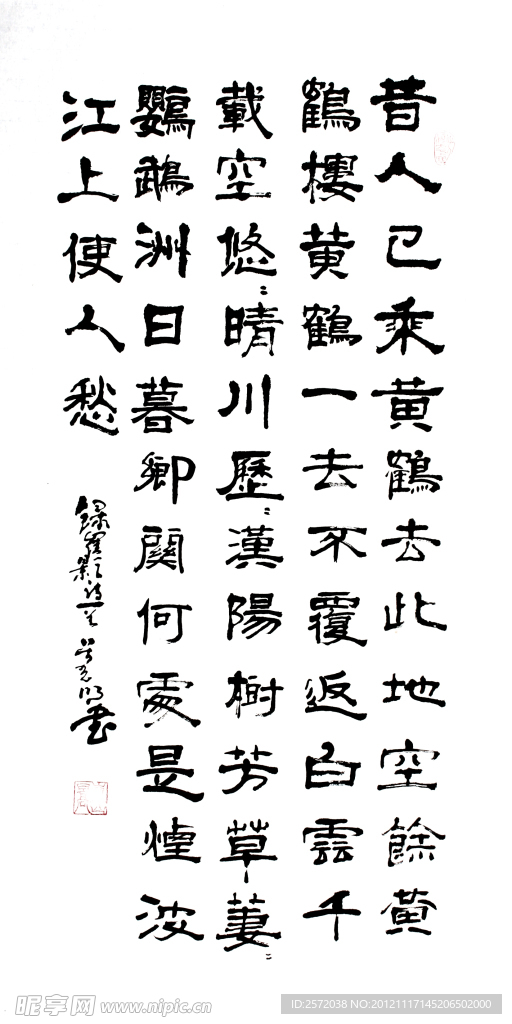 昔人已乘黄鶴去此地空餘黄
鶴樓黄鶴一去不覆返白雲千
載空悠〻晴川歷〻漢陽樹芳草萋〻
鸚鵡洲日暮鄉關何處是煙波
江上使人愁
錄崔顥詩一首 書
昵享网 www.nipic.cn
ID:2572038 NO:20121117145206502000